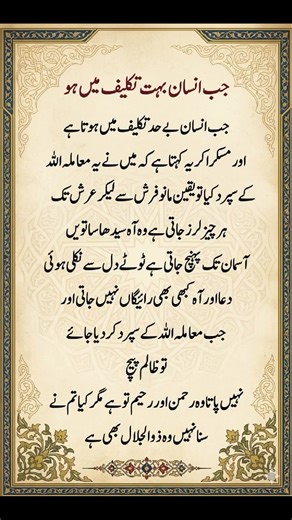 جب انسان بہت تکلیف میں ہو
جب انسان بے حد تکلیف میں ہوتا ہے
اور مسکرا کر یہ کہتا ہے کہ میں نے یہ معاملہ اللہ
کے سپرد کیا تو یقین مانو فرش سے لیکر عرش تک
ہر چیز لرز جاتی ہے وہ آہ سیدھا ساتویں
آسمان تک پہنچ جاتی ہے ٹوٹے دل سے نکلی ہوئی
دعا اور آہ کبھی بھی رائیگاں نہیں جاتی اور
جب معاملہ اللہ کے سپرد کر دیا جائے
تو ظالم پچ
نہیں پاتا وہ رحمن اور رحیم تو ہے مگر کیا تم نے
سنا نہیں وہ ذوالجلال بھی ہے